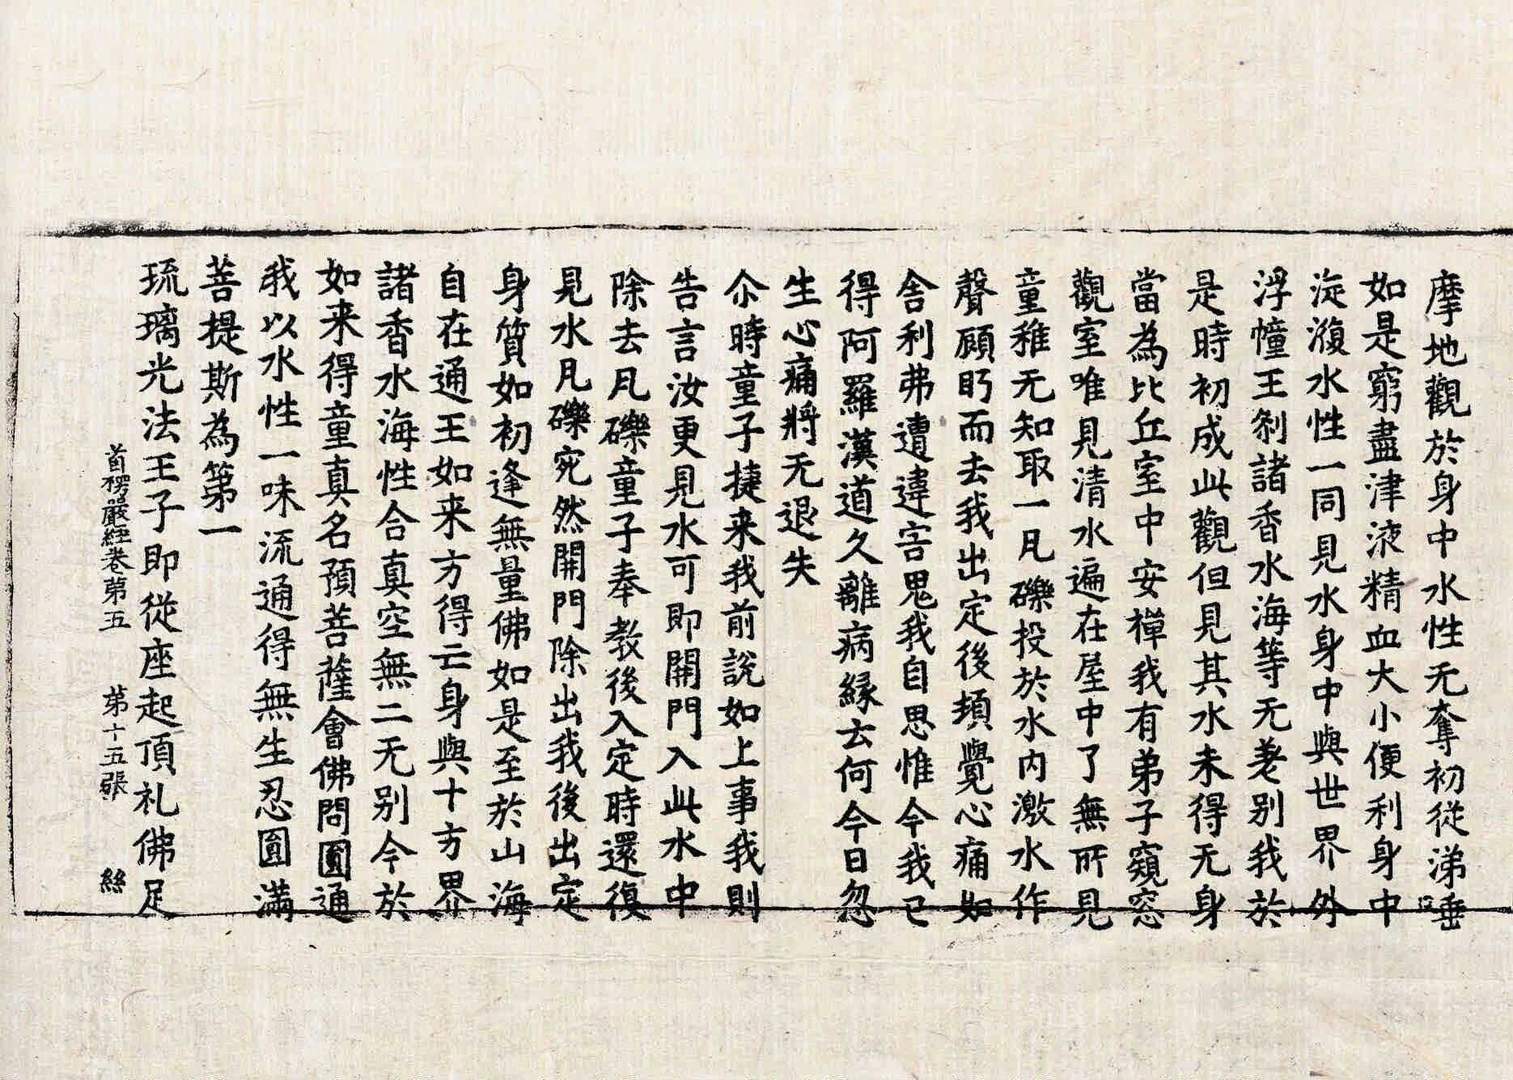 摩地觀於身中水性无奪初從涕唾
如是窮盡津液精血大小便利身中
漩澓水性一同見水身中與世界外
浮幢王剎諸香水海等无差別我於
是時初成此觀但見其水未得无身
當為比丘室中安禪我有弟子窺窓
觀室唯見清水遍在屋中了無所見
童稚无知取一瓦礫投於水內激水作
聲顧眄而去我出定後頓覺心痛如
舎利弗遭違害鬼我自思惟今我已
得阿羅漢道久離病緣云何今日忽
生心痛將无退失
尒時童子捷来我前說如上事我則
告言汝更見水可即開門入此水中
除去瓦礫童子奉教後入定時還復
見水瓦礫宛然開門除出我後出定
身質如初逢無量佛如是至於山海
自在通王如来方得亡身與十方界
諸香水海性合真空無二无別今於
如来得童真名預菩薩會佛問圓通
我以水性一味流通得無生忍圓滿
菩提斯為第一
琉璃光法王子即從座起頂礼佛足
首楞嚴經卷第五 第十五張 絲